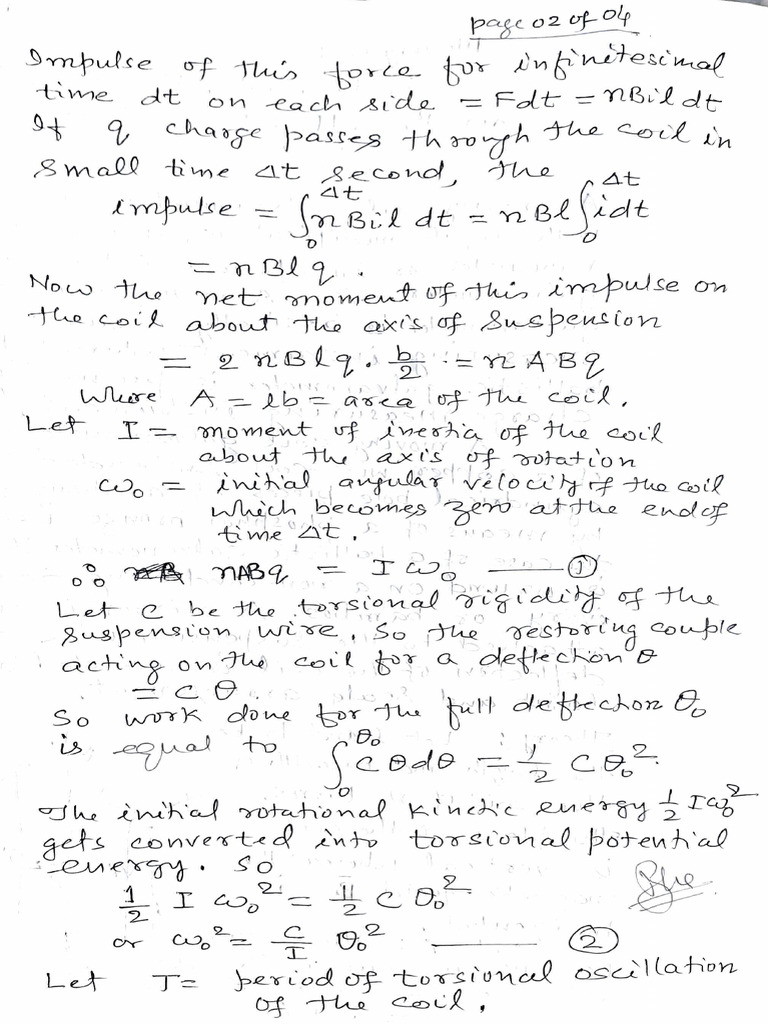 page 02 of 04
Impulse of this force for infinitesimal
time dt on each side = Fdt = nBil dt
If q charge passes through the coil in
small time Δt second, the
impulse = ∫₀^Δt nBil dt = nBl ∫₀^Δt idt
= nBlq .
Now the net moment of this impulse on
the coil about the axis of suspension
= 2 nBlq . b/2 = nABq
Where A = lb = area of the coil.
Let I = moment of inertia of the coil
about the axis of rotation
ω₀ = initial angular velocity of the coil
which becomes zero at the end of
time Δt.
∴ nABq = Iω₀ —— ①
Let c be the torsional rigidity of the
suspension wire. So the restoring couple
acting on the coil for a deflection θ
= cθ.
So work done for the full deflection θ₀
is equal to ∫₀^θ₀ cθdθ = 1/2 cθ₀².
The initial rotational kinetic energy 1/2 Iω₀²
gets converted into torsional potential
energy. So
1/2 I ω₀² = 1/2 c θ₀²
or ω₀² = c/I θ₀² —— ②
Let T = period of torsional oscillation
of the coil,